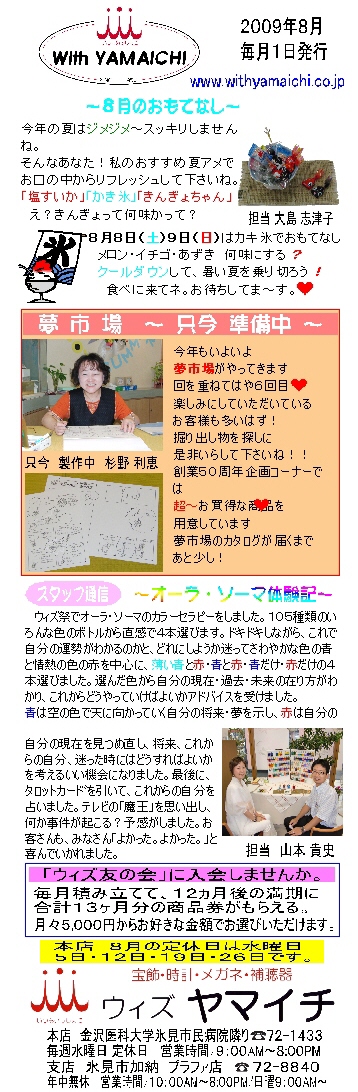 With YAMAICHI
2009年8月
毎月1日発行
www.withyamaichi.co.jp
～8月のおもてなし～
今年の夏はジメジメ～スッキリしません
ね。
そんなあなた！私のおすすめ夏アメで
お口の中からリフレッシュして下さいね。
「塩すいか」「かき氷」「きんぎょちゃん」
え？きんぎょって何味かって？
担当 大島 志津子
氷
8月8日（土）9日（日）はカキ氷でおもてなし
メロン・イチゴ・あずき 何味にする？
クールダウンして、暑い夏を乗り切ろう！
食べに来てネ。お待ちしてま～す。❤
夢市場 ～ 只今 準備中 ～
今年もいよいよ
夢市場がやってきます
回を重ねてはや6回目❤
楽しみにしていただいている
お客様も多いはず！
掘り出し物を探しに
是非いらして下さいね！！
創業50周年企画コーナーで
は
超～お買得な商品を
用意しています
夢市場のカタログが届くまで
あと少し！
只今 製作中 杉野 利恵
スタッフ通信 ～オーラ・ソーマ体験記～
ウィズ祭でオーラ・ソーマのカラーセラピーをしました。105種類のい
ろんな色のボトルから直感で4本選びます。ドキドキしながら、これで
自分の運勢がわかるのかと、どれにしようか迷ってさわやかな色の青
と情熱の色の赤を中心に、薄い青と赤・青と赤・青だけ・赤だけの4
本選びました。選んだ色から自分の現在・過去・未来の在り方がわ
かり、これからどうやっていけばよいかアドバイスを受けました。
青は空の色で天に向かっていく、自分の将来・夢を示し、赤は自分の
自分の現在を見つめ直し、将来、これか
らの自分、迷った時にはどうすればよいか
を考えるいい機会になりました。最後に、
タロットカードを引いて、これからの自分を
占いました。テレビの「魔王」を思い出し、
何か事件が起こる？予感がしました。お
客さんも、みなさん「よかった。よかった。」と
喜んでいかれました。
担当 山本 貴史
「ウィズ友の会」に入会しませんか。
毎月積み立てて、12ヵ月後の満期に
合計13ヶ月分の商品券がもらえる。
月々5,000円からお好きな金額でお選びいただけます。
本店 8月の定休日は水曜日
5日・12日・19日・26日です。
宝飾・時計・メガネ・補聴器
ウィズ ヤマイチ
本店 金沢医科大学氷見市民病院隣り☎72-1433
毎週水曜日 定休日 営業時間/9:00AM～8:00PM
支店 氷見市加納 プラファ店 ☎72-8840
年中無休 営業時間/10:00AM～8:00PM/日・曜9:00AM～